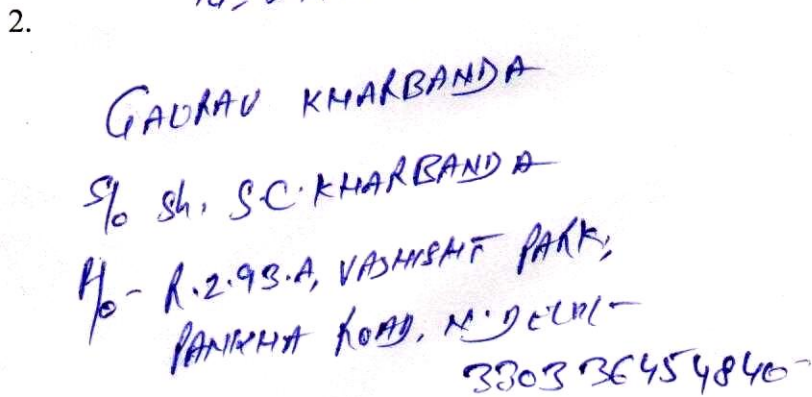 2.
GAURAV KHARBANDA
S/o Sh. S.C. KHARBANDA
R/o - R.2.93.A, VASHISHT PARK,
PANKHA ROAD, N.DELHI-
3303 3645 4840-